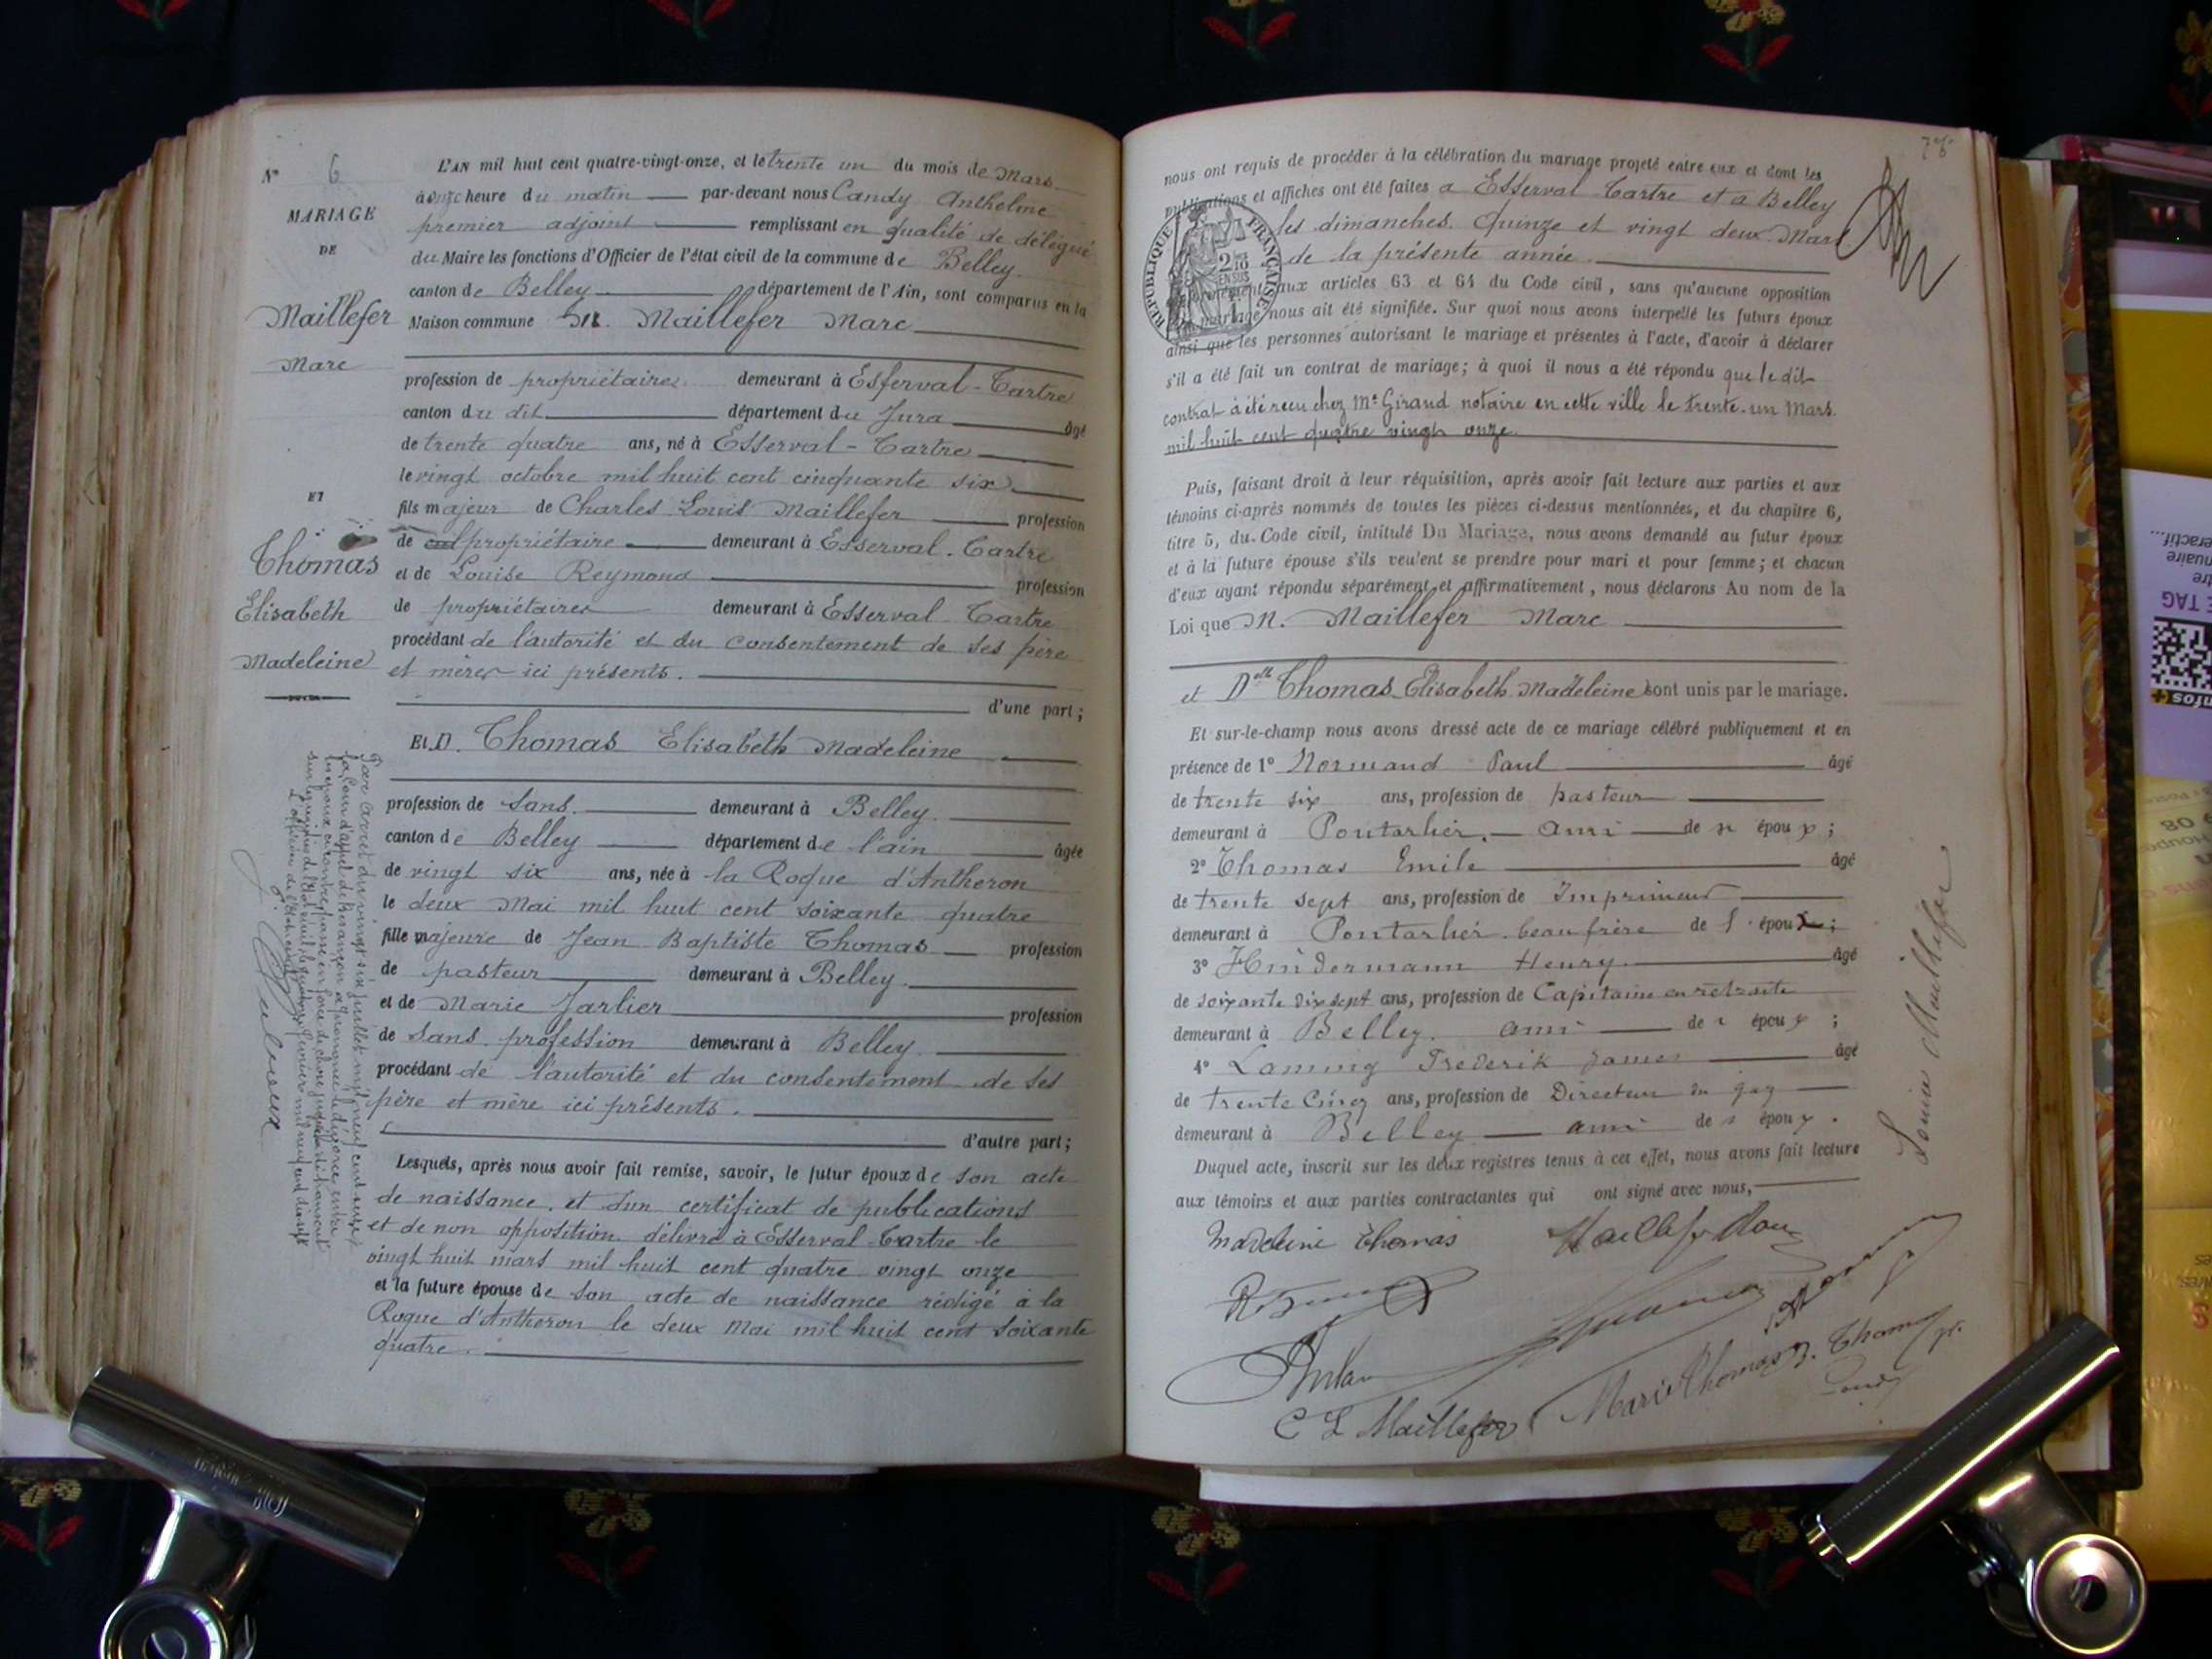 N° 6
MARIAGE
DE
Maillefer
Marc
ET
Thomas
Elisabeth
Madeleine
L'AN mil huit cent quatre-vingt-onze, et le trente un du mois de Mars
à onze heure du matin par-devant nous Candy Anthelme
premier adjoint remplissant en qualité de délégué
du Maire les fonctions d'Officier de l'état civil de la commune de Belley
canton de Belley département de l'Ain, sont comparus en la
Maison commune M. Maillefer Marc
profession de propriétaire demeurant à Esserval-Tartre
canton du dit département du Jura âgé
de trente quatre ans, né à Esserval-Tartre
le vingt octobre mil huit cent cinquante six
fils majeur de Charles Louis Maillefer profession
de propriétaire demeurant à Esserval-Tartre
et de Louise Reymond profession
de propriétaire demeurant à Esserval Tartre
procédant de l'autorité et du consentement de ses père
et mère ici présents.
d'une part;
Et D. Thomas Elisabeth Madeleine
profession de sans demeurant à Belley.
canton de Belley département de l'ain âgée
de vingt six ans, née à la Roque d'Antheron
le deux Mai mil huit cent soixante quatre
fille majeure de Jean Baptiste Thomas profession
de pasteur demeurant à Belley.
et de Marie Jarlier profession
de sans profession demeurant à Belley.
procédant de l'autorité et du consentement de ses
père et mère ici présents.
d'autre part;
Lesquels, après nous avoir fait remise, savoir, le futur époux de son acte
de naissance, et d'un certificat de publications
et de non opposition délivré à Esserval-Tartre le
vingt huit mars mil huit cent quatre vingt onze
et la future épouse de son acte de naissance rédigé à la
Roque d'Antheron le deux Mai mil huit cent soixante
quatre.
Par arrêt du vingt six juillet mil neuf cent seize
la Cour d'appel de Besançon a prononcé le divorce entre
les époux
L'officier de l'Etat civil
78
nous ont requis de procéder à la célébration du mariage projeté entre eux et dont les
publications et affiches ont été faites a Esserval Tartre et a Belley
les dimanches Quinze et vingt deux Mars
de la présente année.
RÉPUBLIQUE FRANÇAISE
2/10 EN SUS
conformément aux articles 63 et 64 du Code civil, sans qu'aucune opposition
au mariage nous ait été signifiée. Sur quoi nous avons interpellé les futurs époux
ainsi que les personnes autorisant le mariage et présentes à l'acte, d'avoir à déclarer
s'il a été fait un contrat de mariage; à quoi il nous a été répondu que le dit
contrat a été reçu chez Me Giraud notaire en cette ville le trente-un Mars
mil huit cent quatre vingt onze.
Puis, faisant droit à leur réquisition, après avoir fait lecture aux parties et aux
témoins ci-après nommés de toutes les pièces ci-dessus mentionnées, et du chapitre 6,
titre 5, du Code civil, intitulé Du Mariage, nous avons demandé au futur époux
et à la future épouse s'ils veulent se prendre pour mari et pour femme; et chacun
d'eux ayant répondu séparément et affirmativement, nous déclarons Au nom de la
Loi que M. Maillefer Marc
et Delle Thomas Elisabeth Madeleine sont unis par le mariage.
Et sur-le-champ nous avons dressé acte de ce mariage célébré publiquement et en
présence de 1° Normand Paul âgé
de trente six ans, profession de pasteur
demeurant à Pontarlier, ami de s époux;
2° Thomas Emile âgé
de trente sept ans, profession de Imprimeur
demeurant à Pontarlier beau frère de l'époux;
3° Hindermann Henry âgé
de soixante dix sept ans, profession de Capitaine en retraite
demeurant à Belley. ami de s époux;
4° Laming Frederik James âgé
de trente Cinq ans, profession de Directeur du gaz
demeurant à Belley ami de s époux.
Duquel acte, inscrit sur les deux registres tenus à cet effet, nous avons fait lecture
aux témoins et aux parties contractantes qui ont signé avec nous,
Madeleine Thomas
Maillefer Marc
C L Maillefer
Marie Thomas
J. Thomas
Louise Maillefer